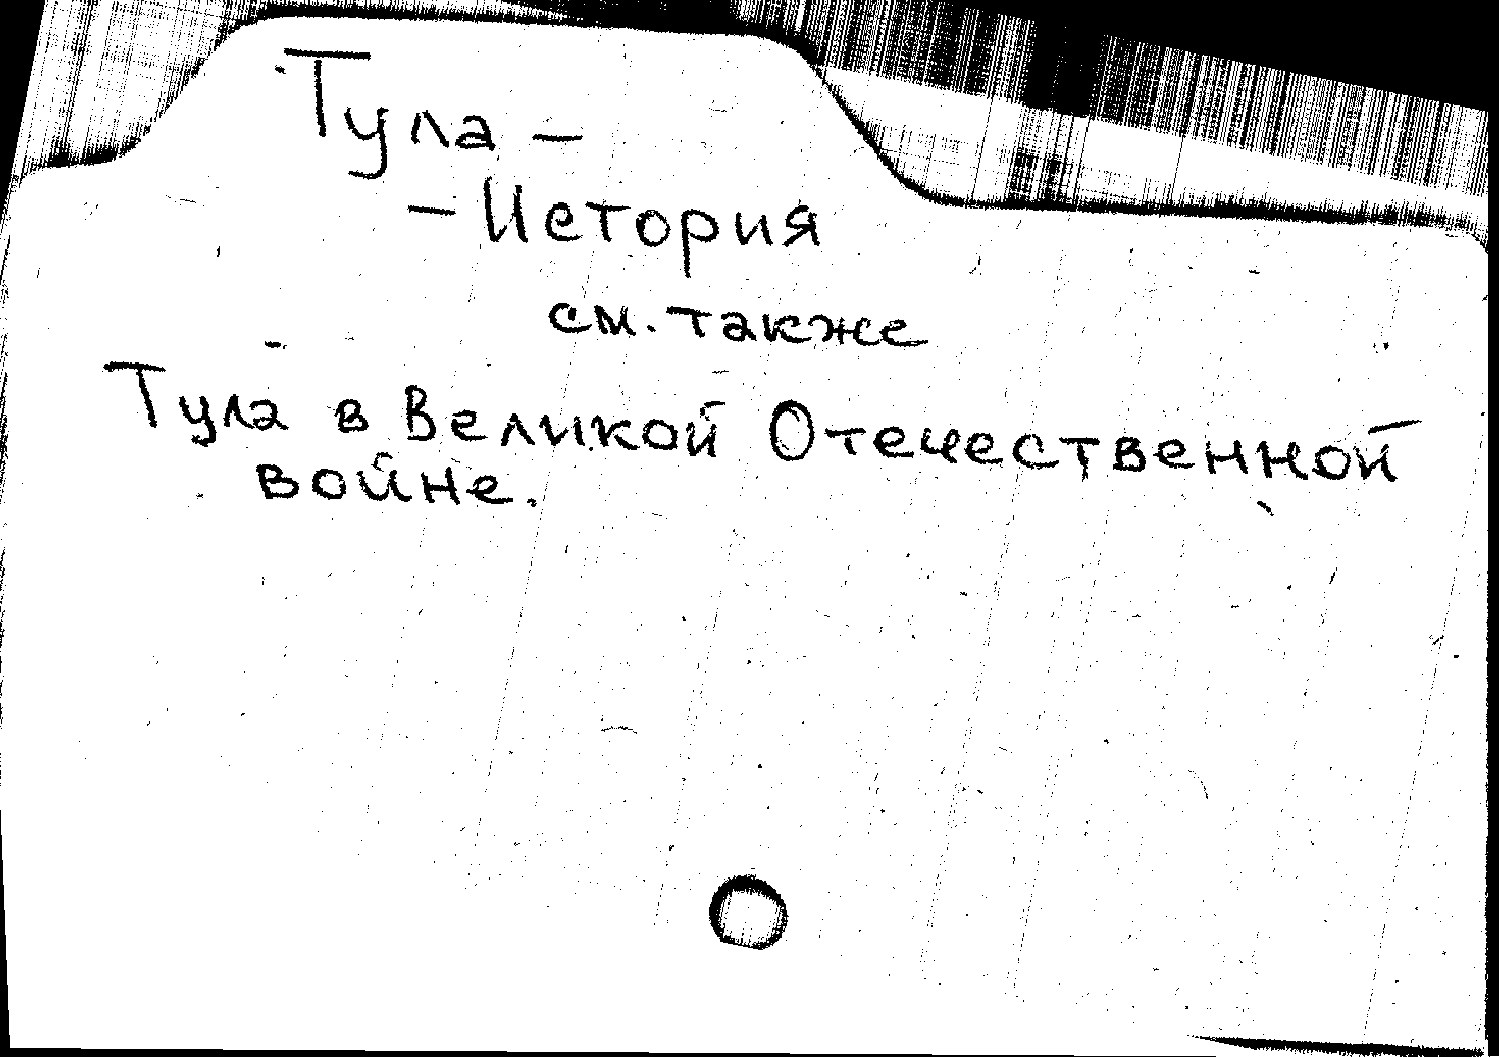 Тула –
– История
см. также
Тула в Великой Отечественной
войне.